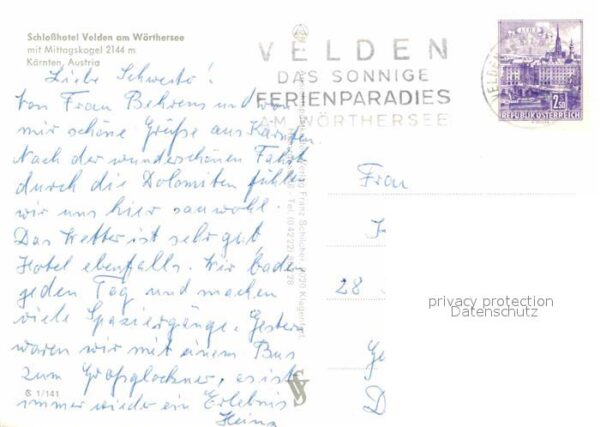 Schloßhotel Velden am Wörthersee
mit Mittagskogel 2144 m
Kärnten, Austria
Liebe Schwester!
Von Frau Behrens und von
mir schöne Grüße aus Kärnten.
Nach der wunderschönen Fahrt
durch die Dolomiten fühlen
wir uns hier sauwohl.
Das Wetter ist sehr gut,
Hotel ebenfalls. Wir baden
jeden Tag und machen
viele Spaziergänge. Gestern
waren wir mit einem Bus
zum Großglockner, es ist
immer wieder ein Erlebnis
Heinz
S 1/141
VELDEN
DAS SONNIGE
FERIENPARADIES
AM WÖRTHERSEE
VELDEN
2.50
REPUBLIK ÖSTERREICH
Franz Schilcher, 9020 Klagenfurt
Frau
28
privacy protection
Datenschutz